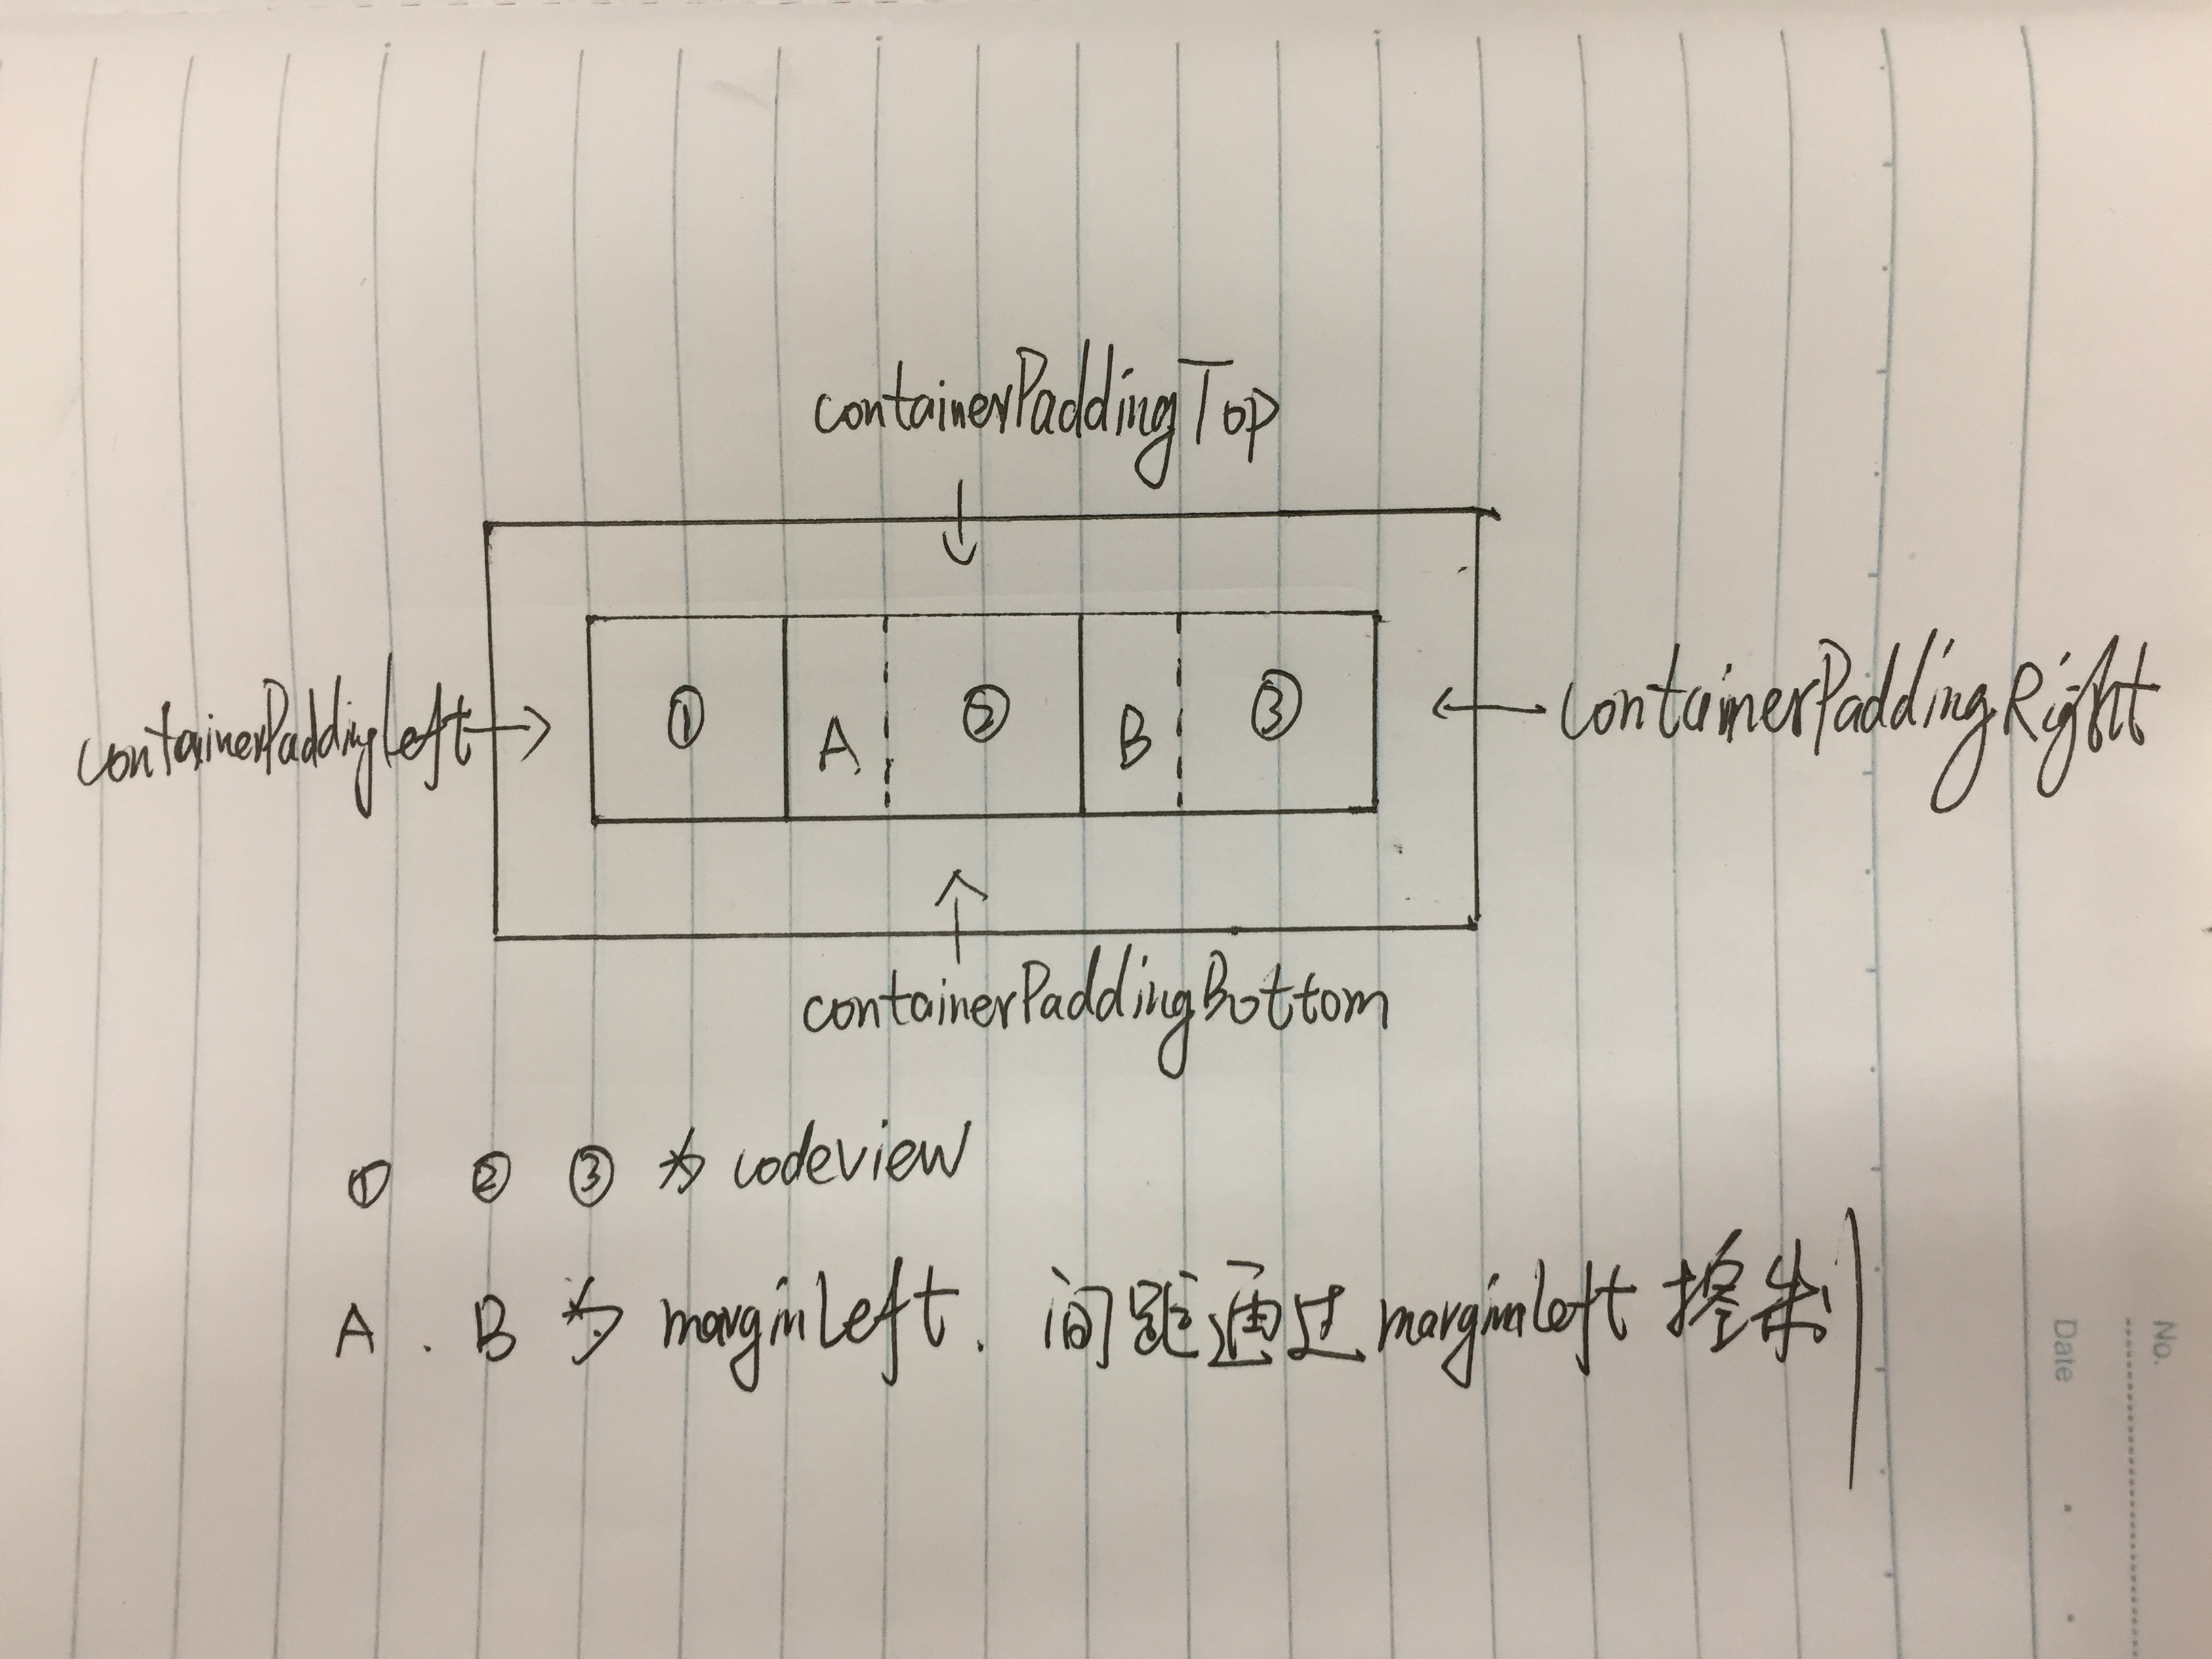 containerPaddingTop
containerPaddingLeft ① A ② B ③ containerPaddingRight
containerPaddingBottom
① ② ③ 为 codeview
A . B 为 marginLeft. 间距通过 marginLeft 控制
No.
Date